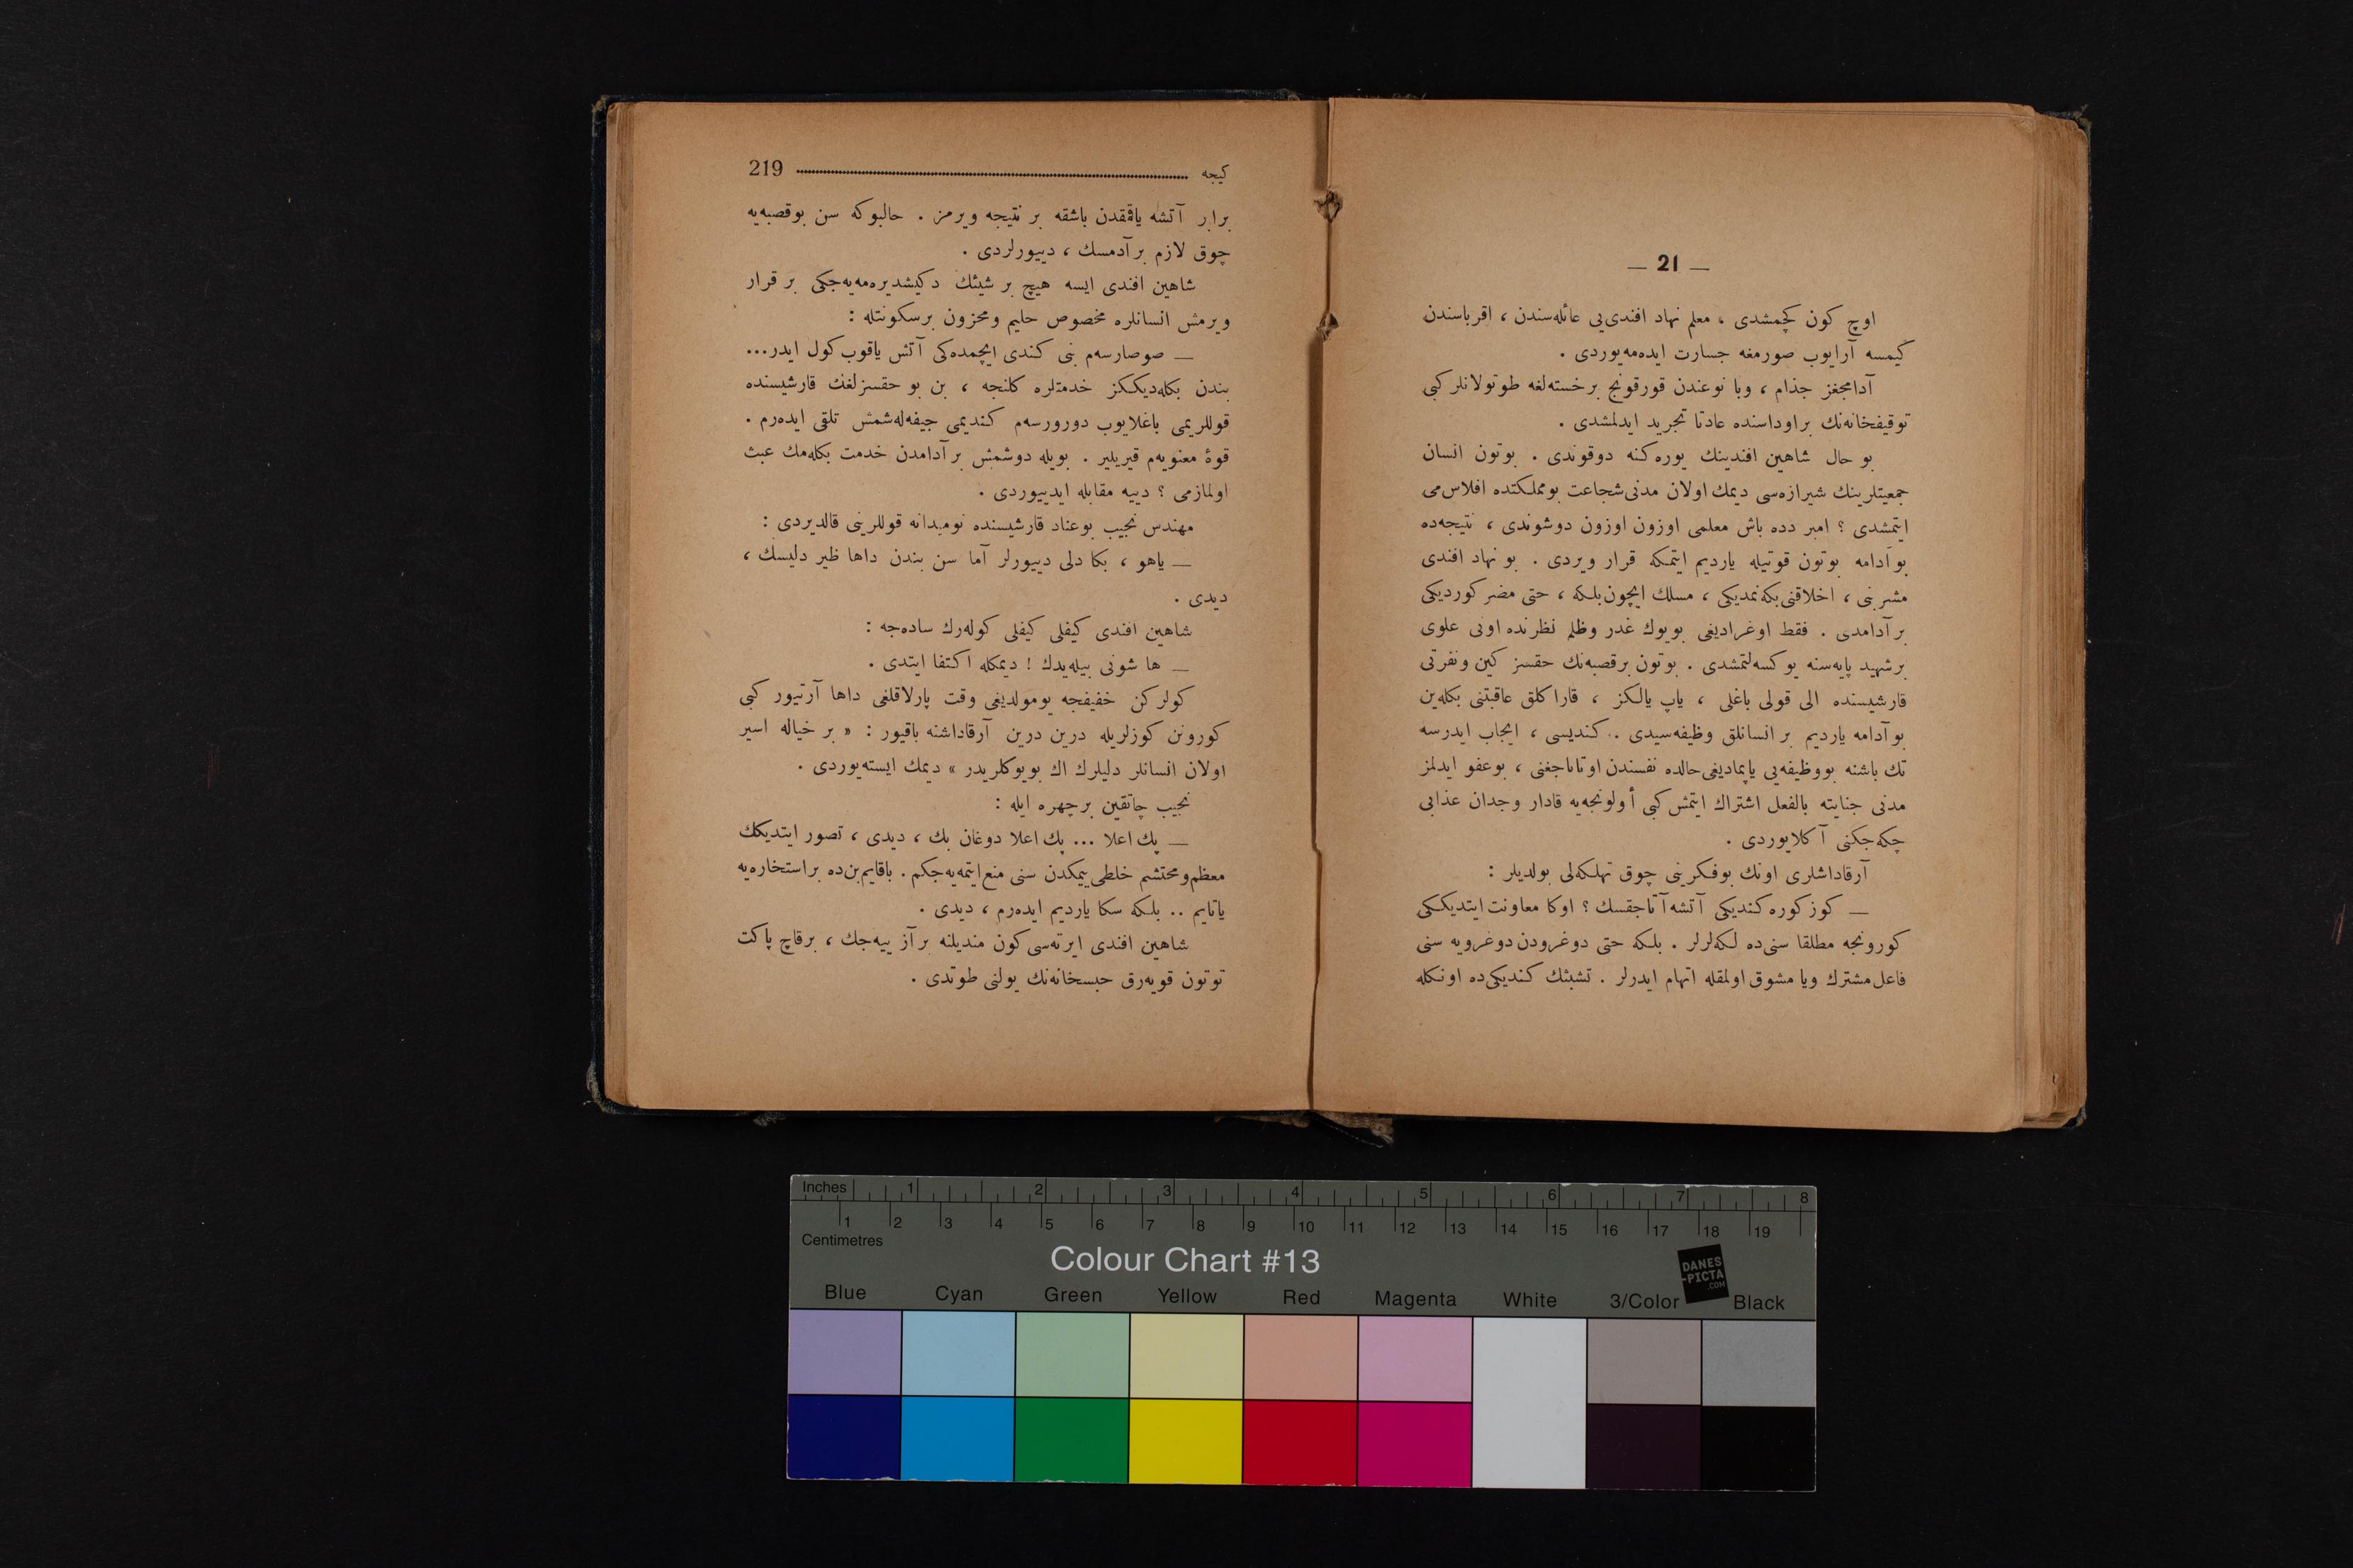 — 21 —
اوچ كون كچمشدی ، معلم نهاد افندی‌یی عائله‌سندن ، اقرباسندن
كیمسه آرایوب صورمغه جسارت ایده‌مه‌یوردی .
آدامجغز جذام ، وبا نوعندن قورقونج بر خسته‌لغه طوتولانلر كبی
توقیفخانه‌نك بر اوداسنده عادتا تجرید ایدلمشدی .
بو حال شاهین افندینك یوره‌كنه دوقوندی . بوتون انسان
جمعیتلرینك شیرازه‌سی دیمك اولان مدنی شجاعت بو مملكتده افلاس می
ایتمشدی ؟ امیر دده باش معلمی اوزون اوزون دوشوندی ، نتیجه‌ده
بو آدامه بوتون قوتیله یاردیم ایتمكه قرار ویردی . بو نهاد افندی
مشربنی ، اخلاقنی بكه‌نمدیكی ، مسلك ایچون بلكه ، حتی مضر كوردیكی
بر آدامدی . فقط اوغرادیغی بویوك غدر وظلم نظرنده اونی علوی
بر شهید پایه‌سنه یوكسه‌لتمشدی . بوتون بر قصبه‌نك حقسز كین ونفرتی
قارشیسنده الی قولی باغلی ، یاپ یالكز ، قاراكلق عاقبتنی بكله‌ین
بو آدامه یاردیم بر انسانلق وظیفه‌سیدی .. كندیسی ، ایجاب ایدرسه
تك باشنه بو وظیفه‌یی یاپمادیغی حالده نفسندن اوتاناجغنی ، بو عفو ایدلمز
مدنی جنایته بالفعل اشتراك ایتمش كبی أولونجه‌یه قادار وجدان عذابی
چكه‌جكنی آكلایوردی .
آرقاداشلری اونك بو فكرینی چوق تهلكه‌لی بولدیلر :
— كوز كوره كندیكی آتشه آتاجقسك ؟ اوكا معاونت ایتدیككی
كورونجه مطلقا سنی ده لكه‌لرلر . بلكه حتی دوغرودن دوغرویه سنی
فاعل مشترك ویا مشوق اولمقله اتهام ایدرلر . تشبثك كندیكی ده اونكله
كیجه 219
برابر آتشه یاقمقدن باشقه بر نتیجه ویرمز . حالبوكه سن بو قصبه‌یه
چوق لازم بر آدمسك ، دییورلردی .
شاهین افندی ایسه هیچ بر شیئك دكیشدیره‌مه‌یه‌جكی بر قرار
ویرمش انسانلره مخصوص حلیم ومحزون بر سكونتله :
— صوصارسه‌م بنی كندی ایچمده‌كی آتش یاقوب كول ایدر...
بندن بكله‌دیككز خدمتلره كلنجه ، بن بو حقسزلغك قارشیسنده
قوللریمی باغلایوب دورورسه‌م كندیمی جیفه‌له‌شمش تلقی ایده‌رم .
قوهٔ معنویه‌م قیریلیر . بویله دوشمش بر آدامدن خدمت بكله‌مك عبث
اولمازمی ؟ دییه مقابله ایدییوردی .
مهندس نجیب بو عناد قارشیسنده نومیدانه قوللرینی قالدیردی :
— یاهو ، بكا دلی دییورلر آما سن بندن داها ظیر دلیسك ،
دیدی .
شاهین افندی كیفلی كیفلی كوله‌رك ساده‌جه :
— ها شونی بیله‌یدك ! دیمكله اكتفا ایتدی .
كولركن خفیفجه یومولدیغی وقت پارلاقلغی داها آرتیور كبی
كورونن كوزلریله درین درین آرقاداشنه باقیور : « بر خیاله اسیر
اولان انسانلر دلیلرك اك بویوكلریدر » دیمك ایسته‌یوردی .
نجیب چاتقین بر چهره ایله :
— پك اعلا ... پك اعلا دوغان بك ، دیدی ، تصور ایتدیكك
معظم ومحتشم خلطی ییمكدن سنی منع ایتمه‌یه‌جكم . باقایم بن ده بر استخاره‌یه
یاتایم .. بلكه سكا یاردیم ایده‌رم ، دیدی .
شاهین افندی ایرته‌سی كون مندیلنه بر آز ییه‌جك ، بر قاچ پاكت
توتون قویه‌رق حبسخانه‌نك یولنی طوتدی .
Inches 1 2 3 4 5 6 7 8
1 2 3 4 5 6 7 8 9 10 11 12 13 14 15 16 17 18 19
Centimetres
Colour Chart #13
DANES
-PICTA
.COM
Blue Cyan Green Yellow Red Magenta White 3/Color Black